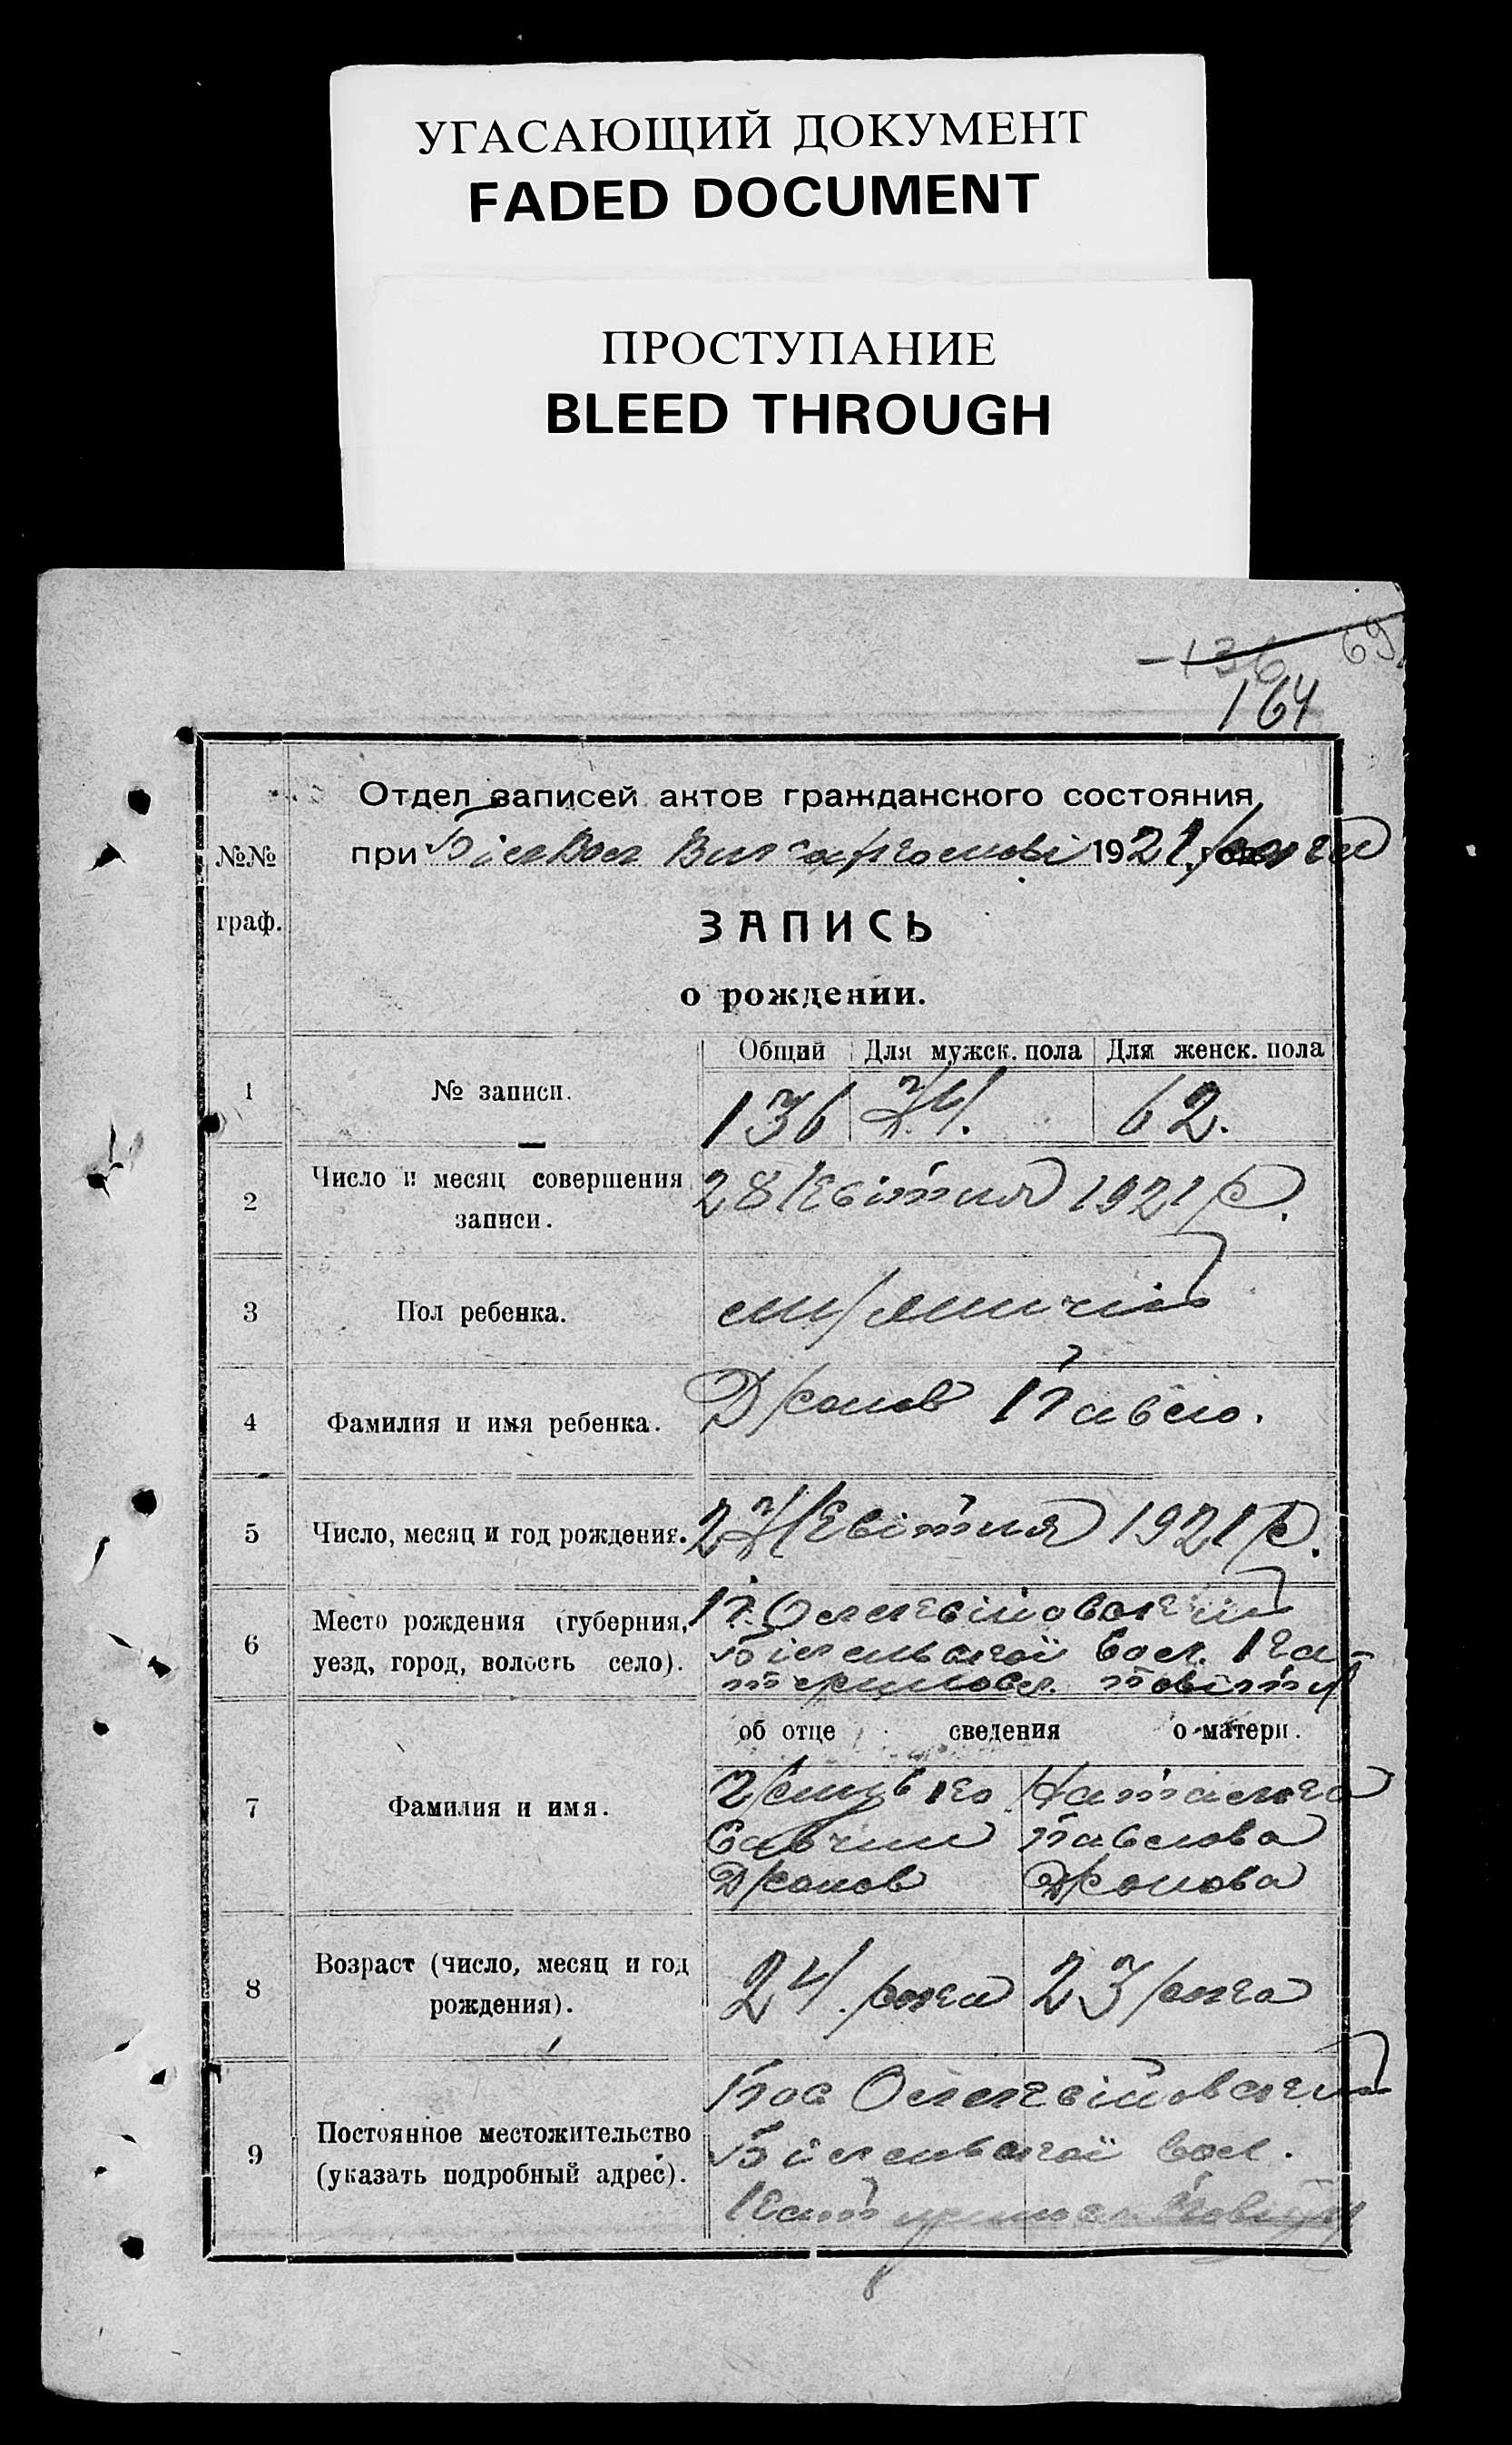 УГАСАЮЩИЙ ДОКУМЕНТ
FADED DOCUMENT
ПРОСТУПАНИЕ
BLEED THROUGH
136 69
164
Отдел записей актов гражданского состояния
№№ при 1921 года року
граф.
ЗАПИСЬ
о рождении.
Общий Для мужск. пола Для женск. пола
1 № записи. 136 74. 62.
2 Число и месяц совершения записи. 28 Квітня 1921 р.
3 Пол ребенка.
4 Фамилия и имя ребенка. Дронов Павло.
5 Число, месяц и год рождения. 27 Квітня 1921 р.
6 Место рождения (губерния, П. Олексіївський
уезд, город, волость село). Біленької вол. Ка-
териносл. повіту
об отце сведения о матери.
7 Фамилия и имя. Наталка
Савчин Павлова
Дронов Дронова
8 Возраст (число, месяц и год рождения). 24 рока 23 рока
9 Постоянное местожительство Пос Олексіївський
(указать подробный адрес). Біленької вол.
Катериносл. повіту